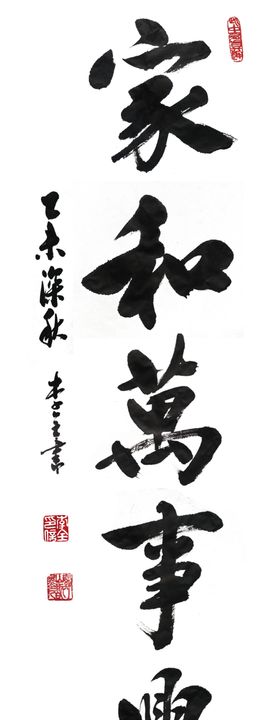 家和萬事興
乙未深秋